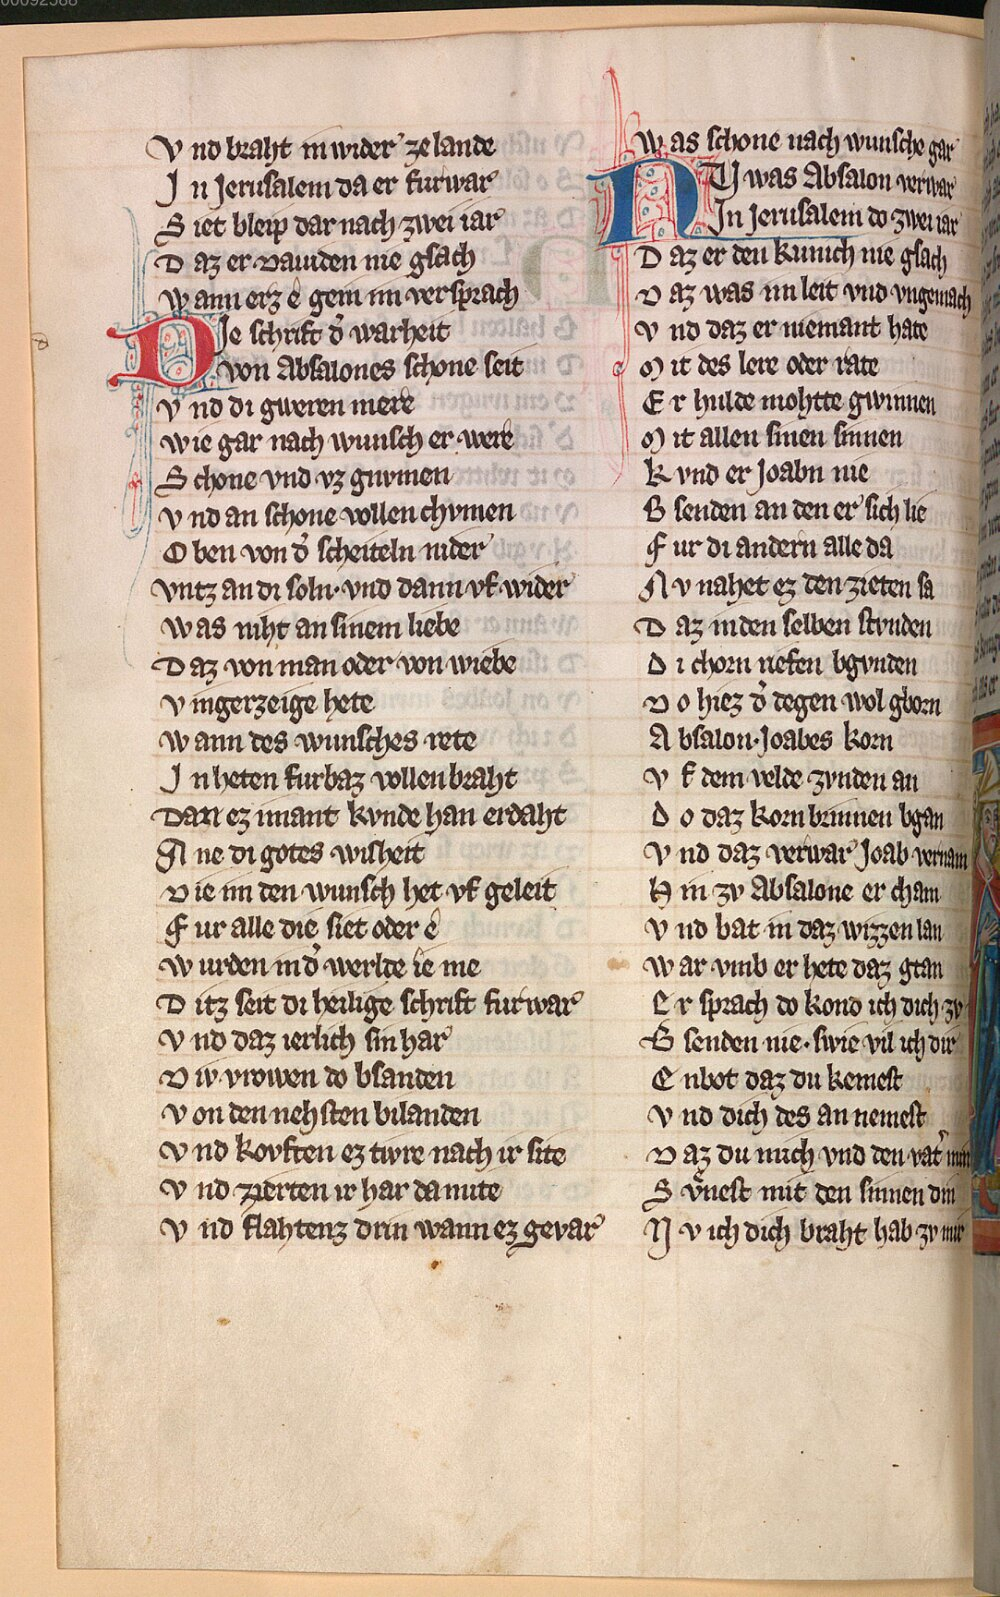 V nd braht in wider ze lande
J n Jerusalem da er furwar
S iet bleip dar nach zwei iar
D az er Dauiden nie gsach
W ann erz e gein im versprach
DIe schrift d' warheit
von Absalones schone seit
V nd di gweren mere
Wie gar nach wunsch er were
S chone vnd vz gnvmen
V nd an schone vollenchvmen
O ben von d' scheiteln nider
Vntz an di soln· vnd dann vf wider
Was niht an sinem liebe
Daz von man oder von wiebe
V ingerzeige hete
W ann des wunsches rete
J n heten furbaz vollenbraht
Dan ez imant kvnde han erdaht
A ne di gotes wisheit
D ie im den wunsch het vf geleit
F ur alle die siet oder e
W urden in d' werlde ie me
D itz seit di heilige schrift furwar
V nd daz ierlich sin har
D iv vrowen do bsanden
V on den nehsten bilanden
V nd kovften ez tivre nach ir site
V nd zierten ir har da mite
V nd flahtenz drin wann ez gevar
W as schone nach wunsche gar
NV was Absalon verwar
In Jerusalem do zwei iar
D az er den kunich nie gsach
D az was im leit vnd vngemach
V nd daz er niemant hate
M it des lere oder rate
E r hulde mohtte gwinnen
M it allen sinen sinnen
K vnd er Joabn nie
B senden an den er sich lie
F ur di andern alle da
N v nahet ez den zieten sa
D az in den selben stvnden
D i chorn riefen bgvnden
D o hiez d' degen wol gborn
A bsalon· Joabes korn
V f dem velde zvnden an
D o daz korn brinnen bgan
V nd daz verwar Joab vernam
H in zv Absalone er cham
V nd bat in daz wizzen lan
W ar vmb er hete daz gtan
E r sprach do kond ich dich zv
B senden nie· swie vil ich dir
E nbot daz du kemest
V nd dich des an nemest
D az du mich vnd den vat' min
S vnest mit den sinnen din
N v ich dich braht hab zv mir